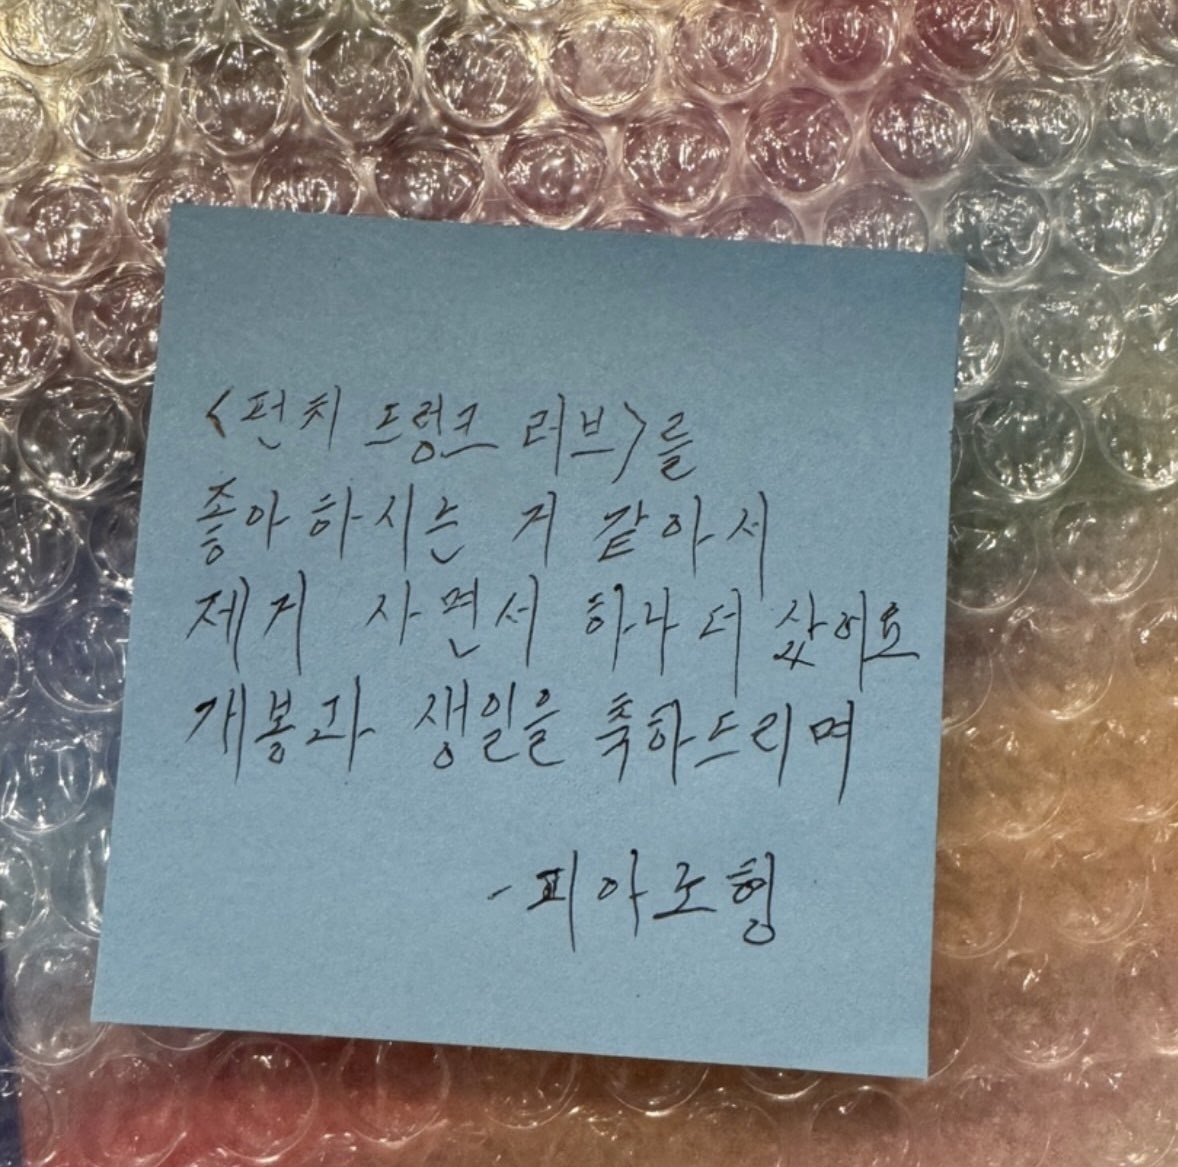 <펀치 드렁크 러브>를
좋아하시는 거 같아서
제거 사면서 하나 더 샀어요
개봉과 생일을 축하드리며
- 피아노형